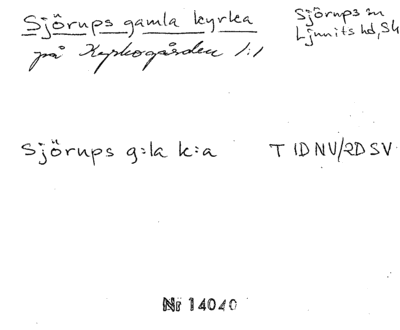 Sjörups gamla kyrka
på Kyrkogården 1:1
Sjörups sn
Ljunits hd, Sk
Sjörups g:la k:a T 1D NV/2D SV
Nr 14040